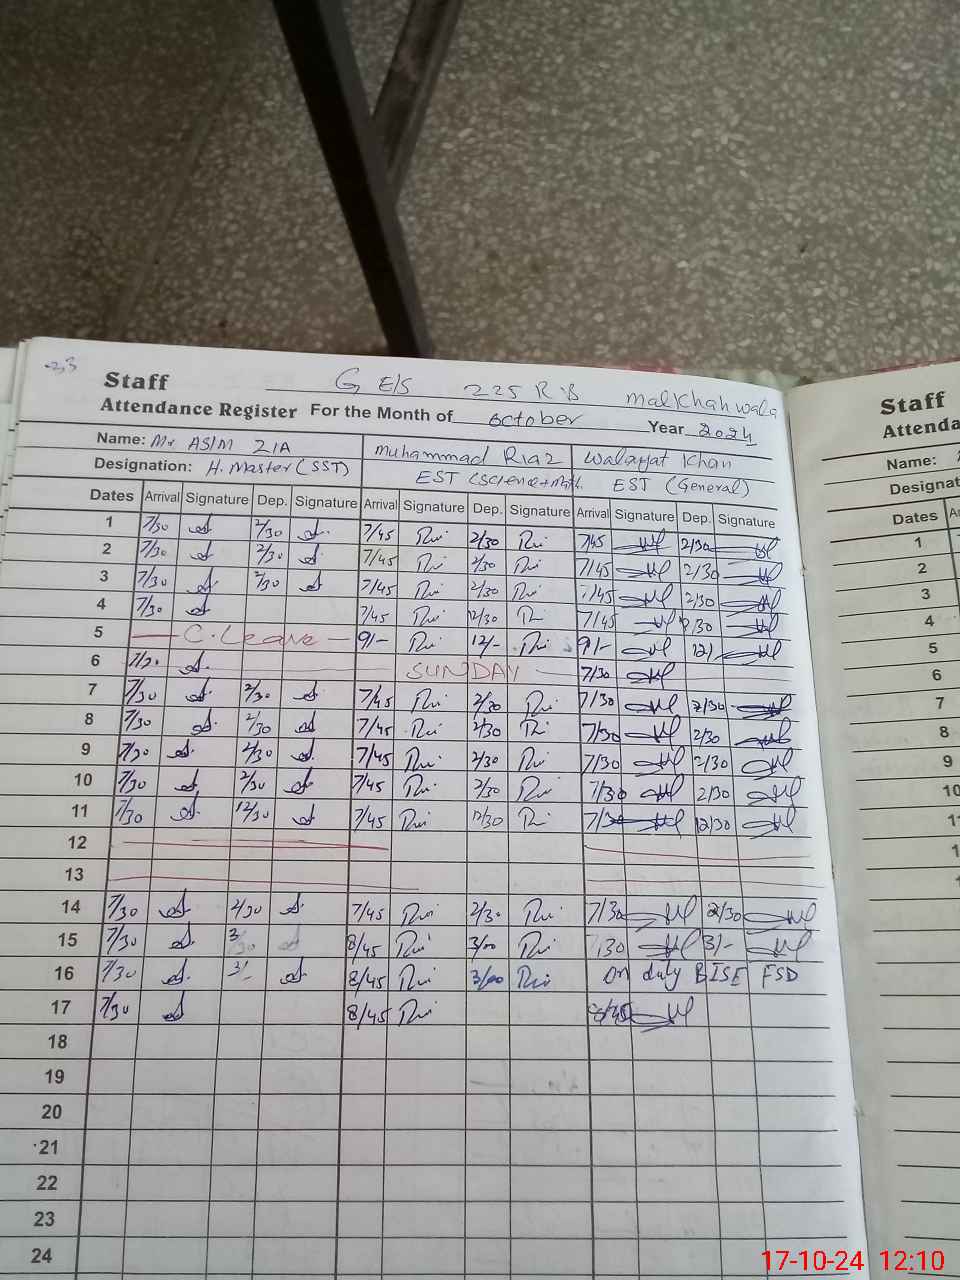 Staff G E/S 225 R.B Malkhahwala
Attendance Register For the Month of october Year 2024
Name: Mr ASIM ZIA Muhammad Riaz Walayat Khan
Designation: H. Master (SST) EST (Science+Math. EST (General)
Dates Arrival Signature Dep. Signature Arrival Signature Dep. Signature Arrival Signature Dep. Signature
1 7/30 2/30 7/45 Rui 2/30 Rui 7/45 2/30
2 7/30 2/30 7/45 Rui 2/30 Rui 7/45 2/30
3 7/30 2/30 7/45 Rui 2/30 Rui 7/45 2/30
4 7/30 7/45 Rui 12/30 Rui 7/45 12/30
5 C. Leave 9/- Rui 12/- Rui 9/- 12/
6 7/30 SUNDAY 7/30
7 7/30 2/30 7/45 Rui 2/30 Rui 7/30 2/30
8 7/30 2/30 7/45 Rui 2/30 Rui 7/30 2/30
9 7/30 2/30 7/45 Rui 2/30 Rui 7/30 2/30
10 7/30 2/30 7/45 Rui 2/30 Rui 7/30 2/30
11 7/30 12/30 7/45 Rui 12/30 Rui 7/30 12/30
12
13
14 7/30 2/30 7/45 Rui 2/30 Rui 7/30 2/30
15 7/30 3/30 8/45 Rui 3/00 Rui 7/30 3/-
16 7/30 3/- 8/45 Rui 3/00 Rui On duty BISE FSD
17 7/30 8/45 Rui 8/45
18
19
20
21
22
23
24
Staff
Attenda
Name:
Designat
Dates
1
2
3
4
5
6
7
8
9
10
17-10-24 12:10